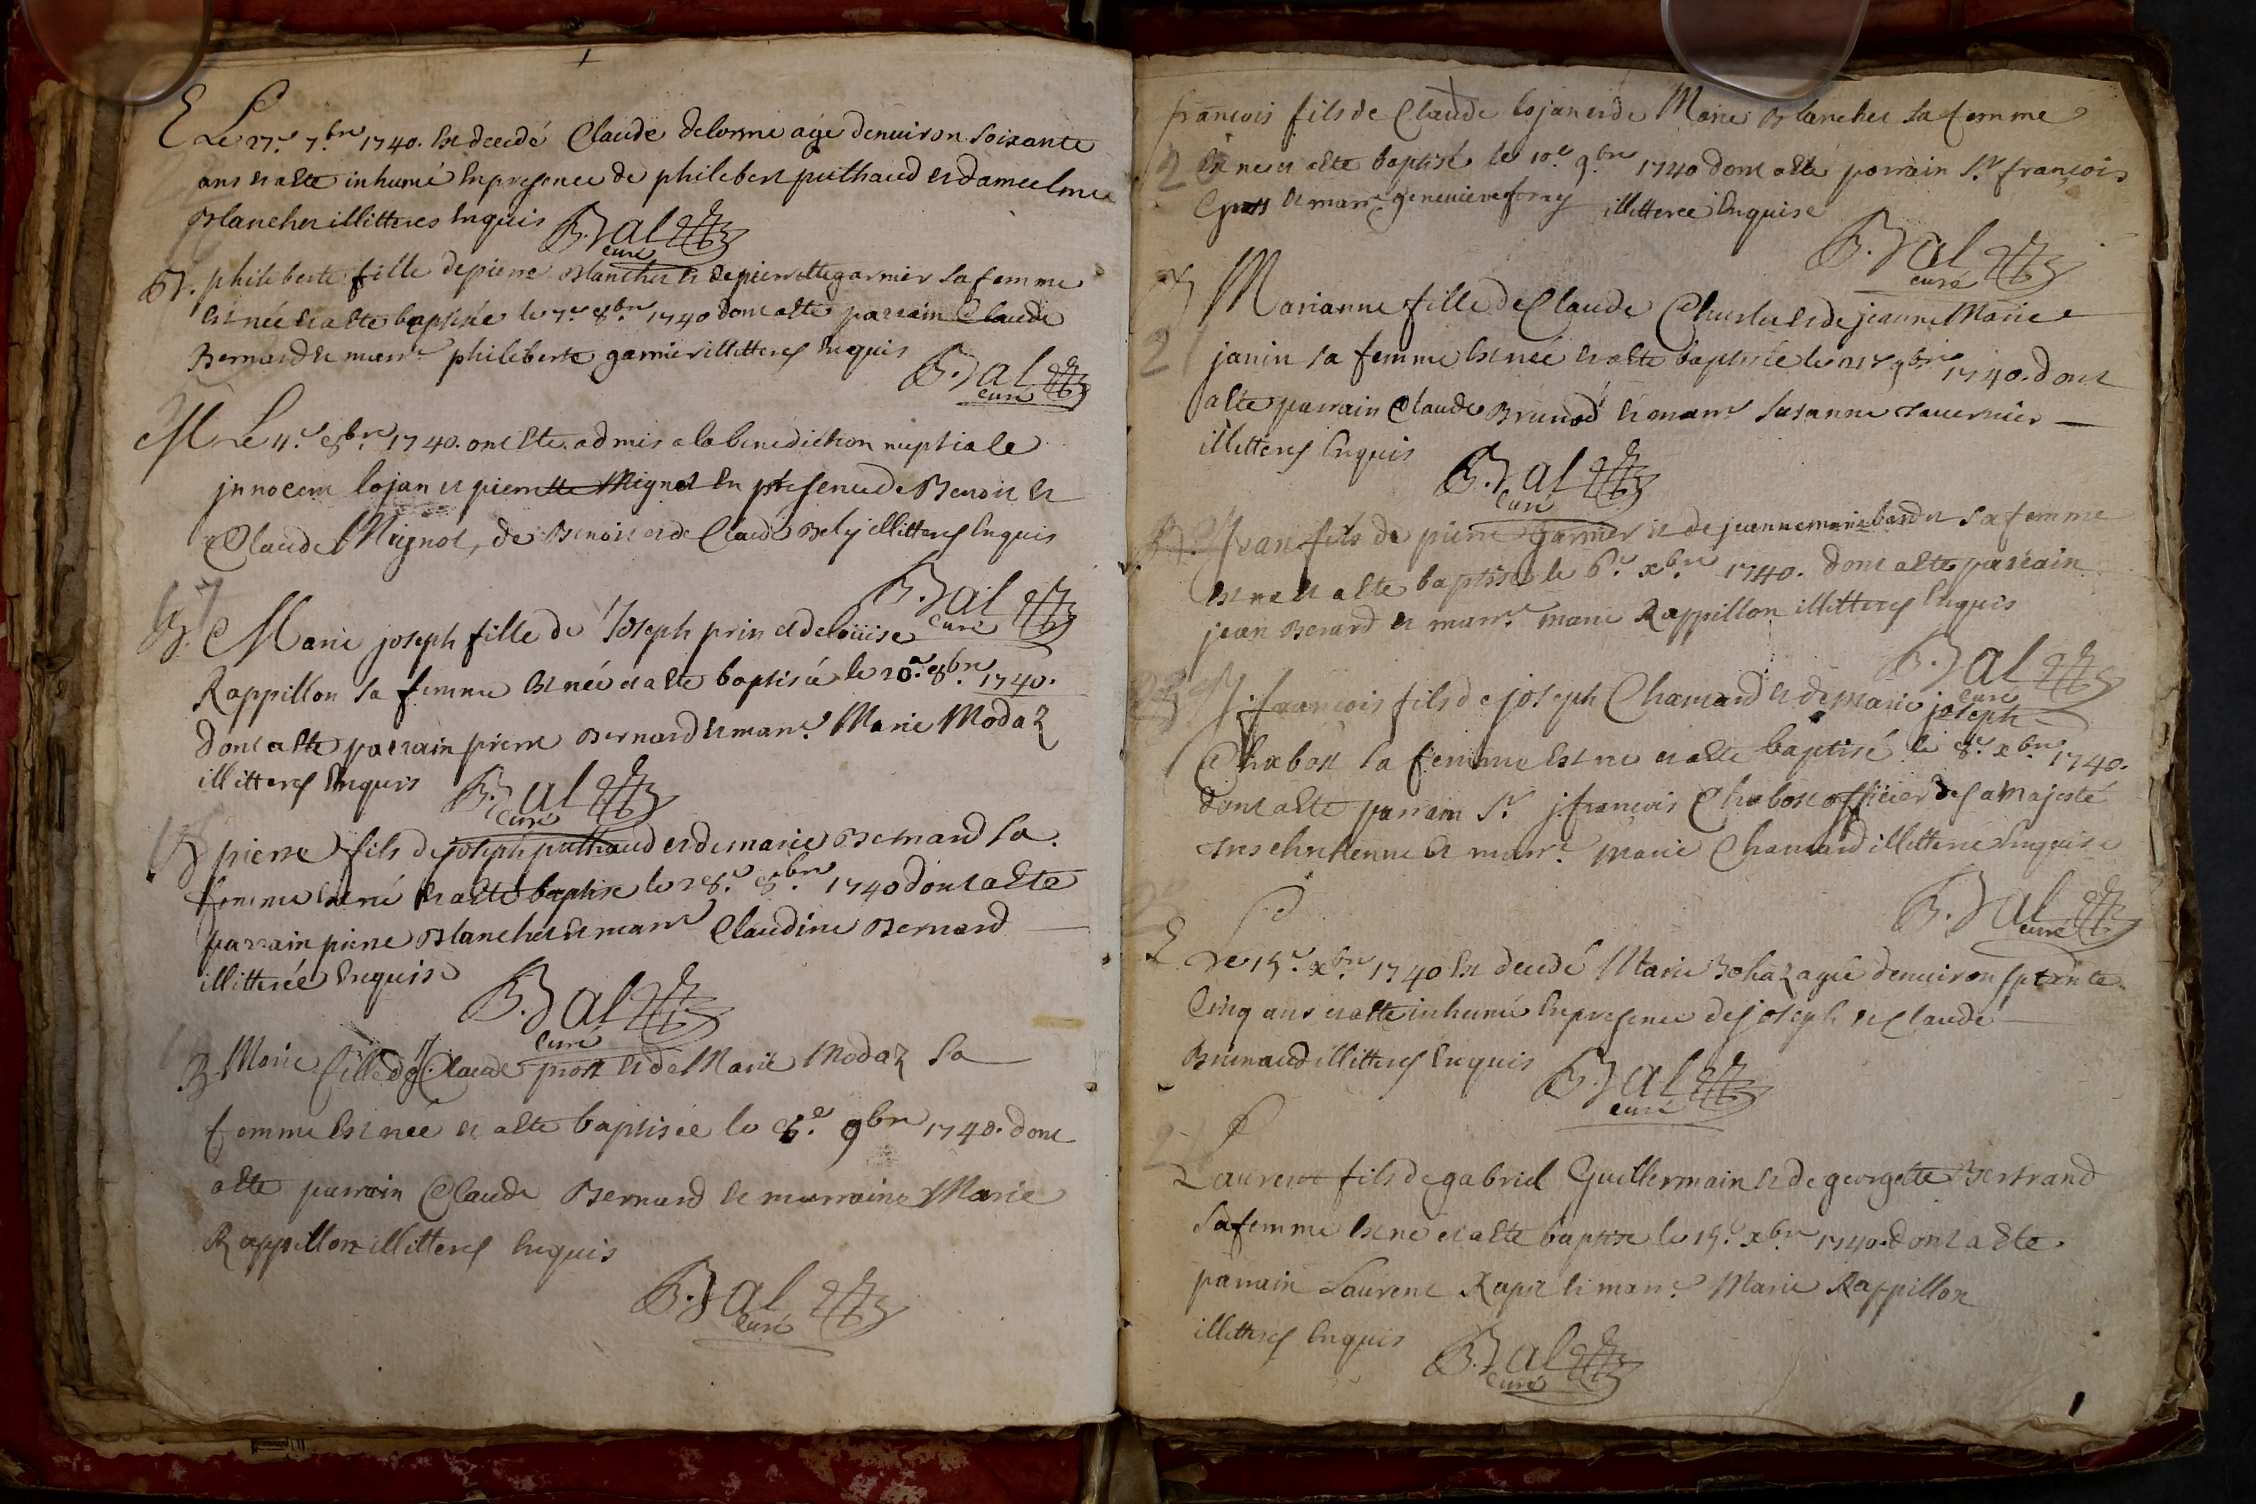 E Le 27.e 7.bre 1740. Est decedé Claude delorme agé denuiron soixante
ans et a Eté inhumé En presence de philebert puthaud et d'
Blanchet illitteres Enquis B. Bal
curé
B. philiberte fille de pierre Blanchet et de pierrette garnier sa femme
Est née et a Eté baptisée le 7.e 8.bre 1740 dont a Eté parrain Claude
Bernard et marr.e philiberte garnier illitteres Enquis B. Bal
curé
M Le 4.e 8.bre 1740. ont Ete admis a la benediction nuptiale
jnnocent lojan et pierrette Mignot En presence de Benoit et
Claude Mignot, de Benoit et de Claude Bely illitteres Enquis
B. Bal
curé
B. Marie joseph fille de Joseph prin et de loüise
Rappillon sa femme Est née et a Eté baptisée le 20.e 8.bre 1740.
dont a Eté parrain pierre Bernard et marr.e Marie Modaz
illitteres Enquis B. Bal
curé
B pierre fils de joseph puthaud et de marie Bernard sa
femme Est né Et a Eté baptisé le 28.e 8.bre 1740 dont a Eté
parrain pierre Blanchet et marr.e Claudine Bernard
illitterée Enquise B. Bal
curé
B Marie fille de j. Claude prost et de Marie Modaz sa
femme Est née et a Eté baptisée le 9bre 1740. dont
a Eté parrain Claude Bernard et marraine Marie
Rappillon illitteres Enquis
B. Bal
curé
francois fils de Claude lojan et de Marie Blanchet sa femme
Est né et a Eté baptisé le 10.e 9.bre 1740 dont a Eté parrain S.r françois
et marr.e genevieve illitterée Enquise
B. Bal
curé
B Marianne fille de Claude et de jeanne Marie
janin sa femme Est née et a Eté baptisée le 21.e 9bre 1740. dont
a Eté parrain Claude Brunod et marr.e Susanne
illitteres Enquis B. Bal
curé
B. jean fils de pierre garnier et de jeanne marie sa femme
Est né et a Eté baptisé le 6.e xbre 1740. dont a Eté parrain
jean Berard et marr.e marie Rappillon illitteres Enquis
B. Bal
curé
j. francois fils de joseph Chamard et de marie joseph
Chabost sa femme Est né et a Eté baptisé le 8.e xbre 1740.
dont a Eté parrain S.r j. francois Chabost officier de sa majesté
tres chretienne et marr.e marie Chamard illitterée Enquise
B. Bal
curé
E Le 15.e xbre 1740 Est decedé Marie Bohaz agée denuiron septante
Cinq ans et a Eté inhumée En presence de joseph et Claude
Brunaud illitteres Enquis B. Bal
curé
Laurent fils de gabriel Guillermain et de georgette Bertrand
sa femme Est né et a Eté baptisé le 15.e xbre 1740. dont a Eté
parrain Laurent et marr.e Marie Rappillon
illitteres Enquis B. Bal
curé